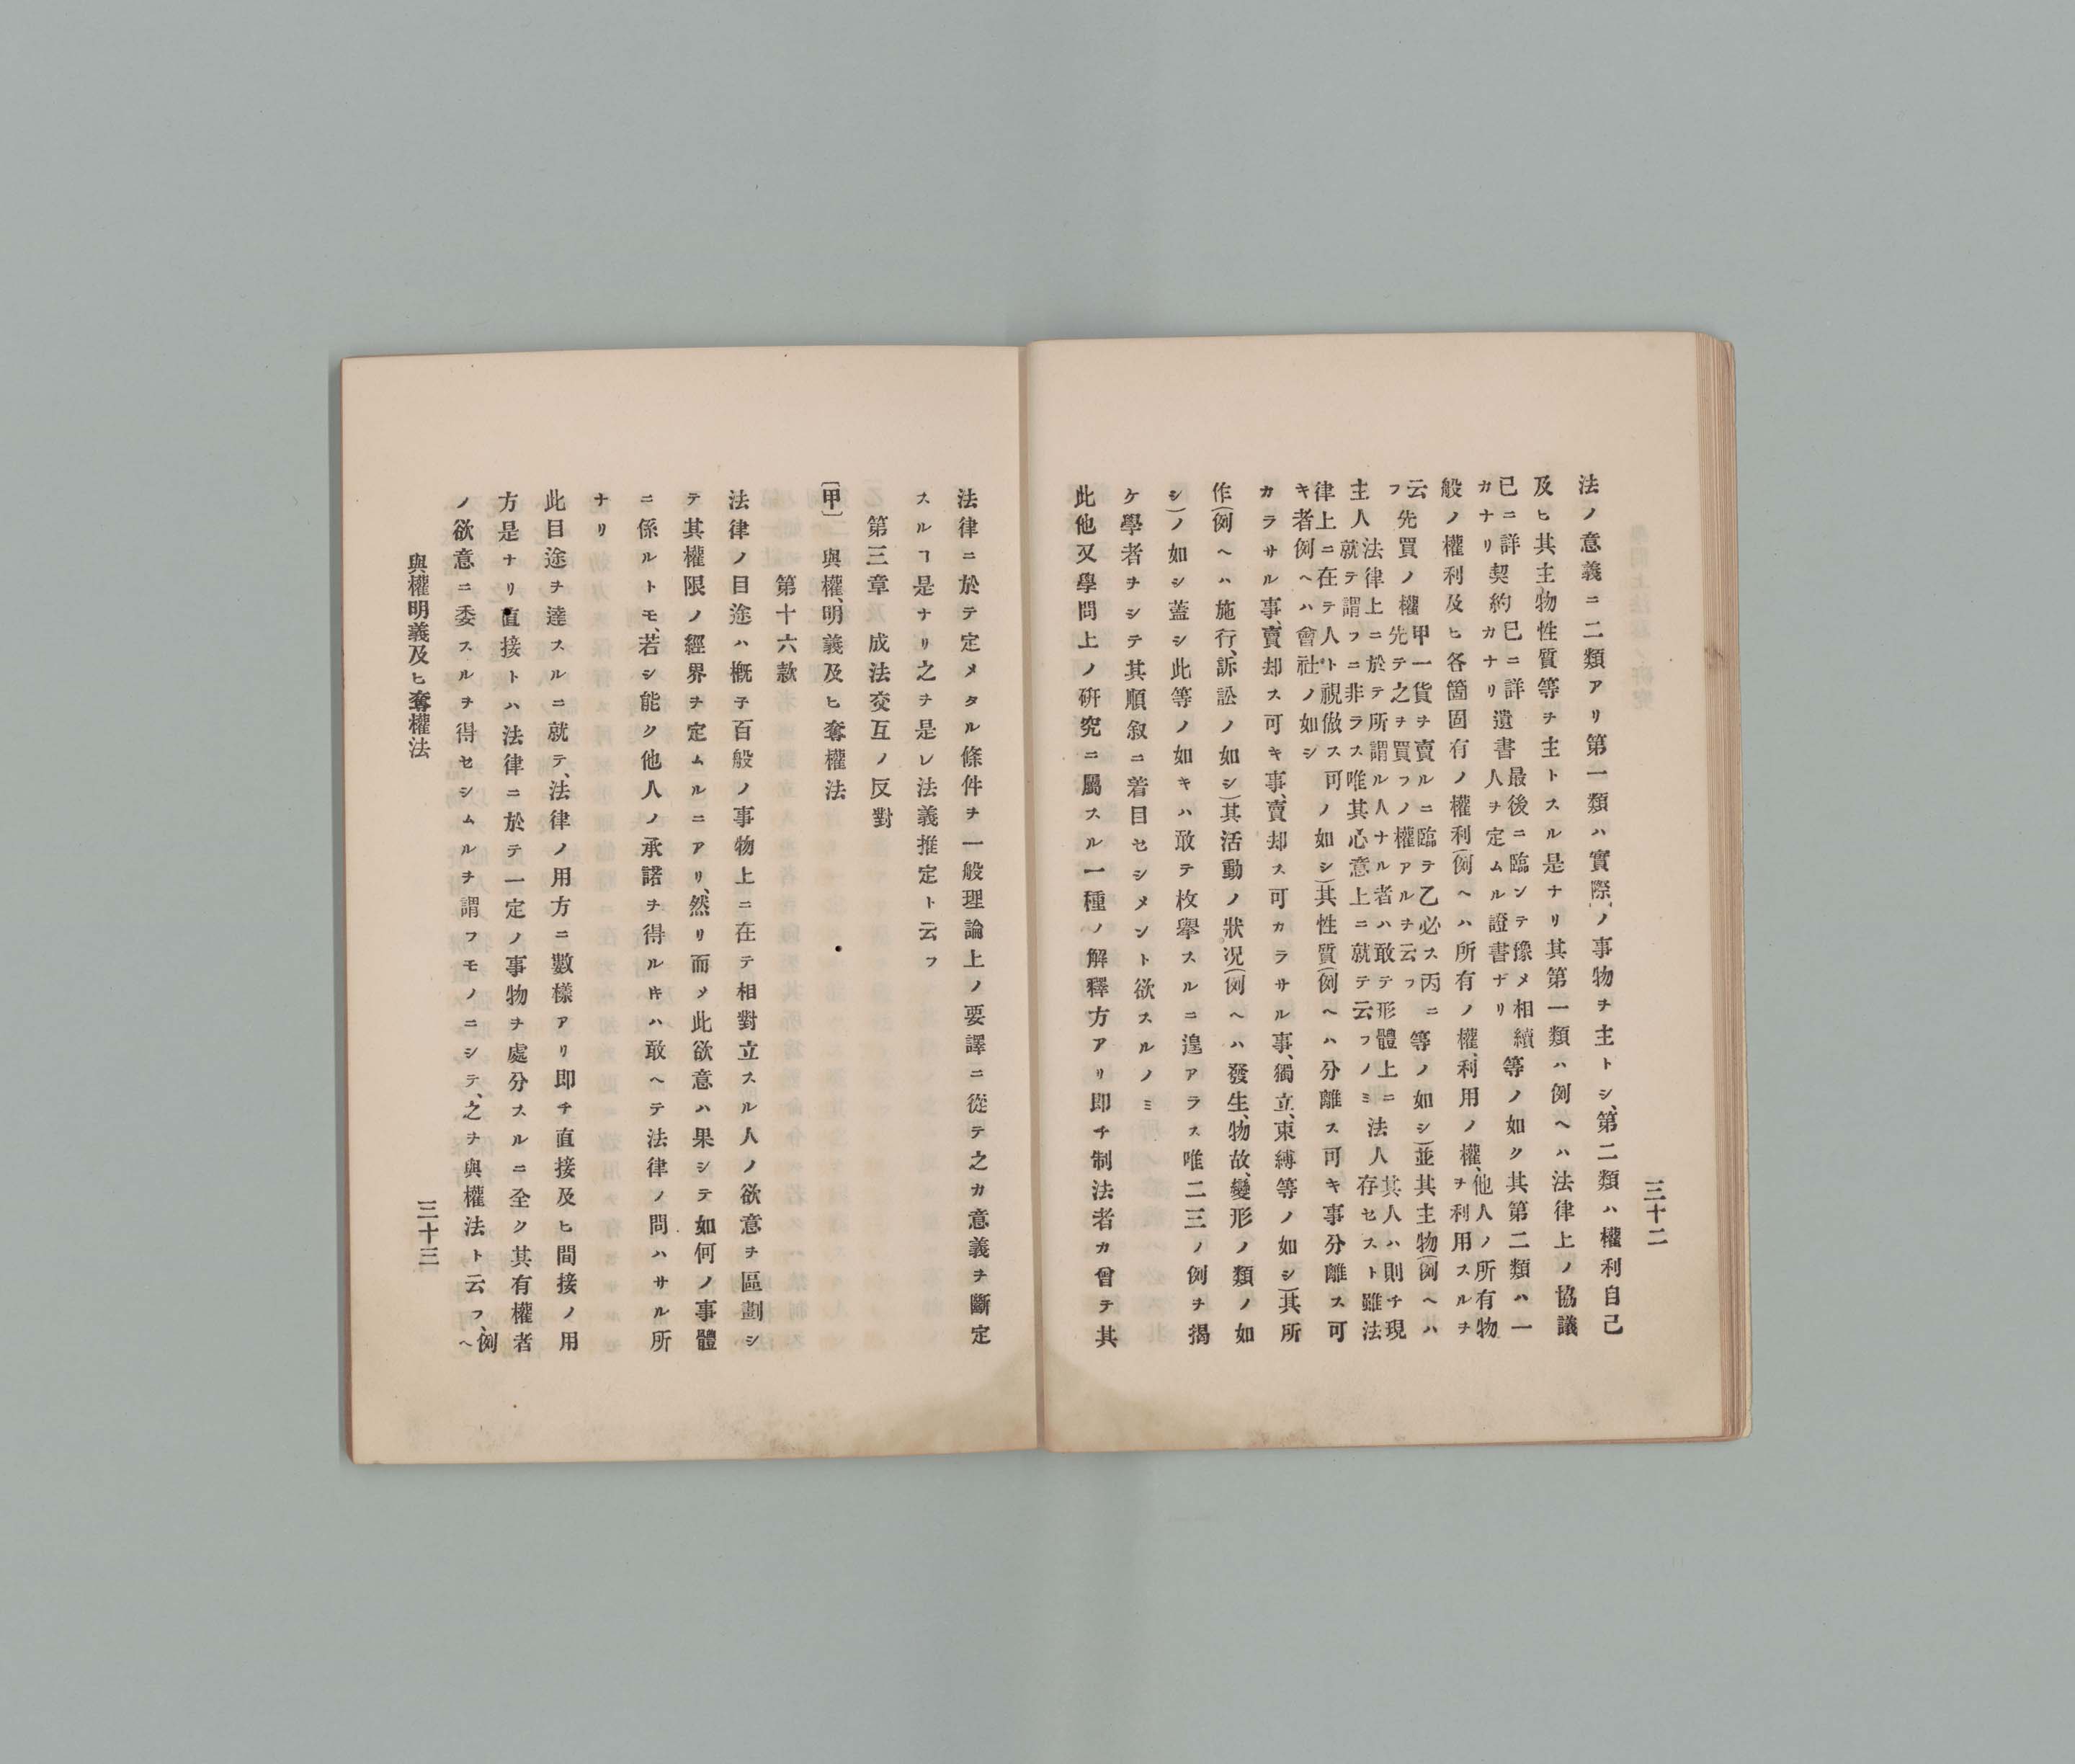 三十二
法ノ意義ニ二類アリ第一類ハ實際ノ事物ヲ主トシ、第二類ハ權利自己
及ヒ其主物性質等ヲ主トスル是ナリ其第一類ハ例ヘハ法律上ノ協議
已ニ詳カナリ契約已ニ詳カナリ遺書最後ニ臨ンテ豫メ相續人ヲ定ムル證書ナリ等ノ如ク其第二類ハ一
般ノ權利及ヒ各箇固有ノ權利(例ヘハ所有ノ權、利用ノ權、他人ノ所有物ヲ利用スルヲ
云フ先買ノ權甲一貨ヲ賣ルニ臨テ乙必ス丙ニ先テ之ヲ買フノ權アルヲ云フ等ノ如シ)並其主物(例ヘハ
主人法律上ニ於テ所謂ル人ナル者ハ敢テ形體上ニ就テ謂フニ非ラス唯其心意上ニ就テ云フノミ法人其人ハ則チ現存セスト雖法
律上ニ在テ人ト視做ス可キ者例ヘハ會社ノ如シノ如シ)其性質(例ヘハ分離ス可キ事分離ス可
カラサル事、賣却ス可キ事、賣却ス可カラサル事、獨立、束縛等ノ如シ)其所
作(例ヘハ施行、訴訟ノ如シ)其活動ノ狀况(例ヘハ發生、物故、變形ノ類ノ如
シ)ノ如シ蓋シ此等ノ如キハ敢テ枚擧スルニ遑アラス唯二三ノ例ヲ揭
ケ學者ヲシテ其順敘ニ着目セシメント欲スルノミ
此他又學問上ノ硏究ニ屬スル一種ノ解釋方アリ即チ制法者カ曾テ其
法律ニ於テ定メタル條件ヲ一般理論上ノ要譯ニ從テ之カ意義ヲ斷定
スルヿ是ナリ之ヲ是レ法義推定ト云フ
第三章 成法交互ノ反對
〔甲〕 與權、明義及ヒ奪權法
第十六款
法律ノ目途ハ槪子百般ノ事物上ニ在テ相對立スル人ノ欲意ヲ區劃シ
テ其權限ノ經界ヲ定ムルニアリ、然リ而メ此欲意ハ果シテ如何ノ事體
ニ係ルトモ、若シ能ク他人ノ承諾ヲ得ルキハ敢ヘテ法律ノ問ハサル所
ナリ
此目途ヲ達スルニ就テ、法律ノ用方ニ數樣アリ即チ直接及ヒ間接ノ用
方是ナリ直接トハ法律ニ於テ一定ノ事物ヲ處分スルニ全ク其有權者
ノ欲意ニ委スルヲ得セシムルヲ謂フモノニシテ、之ヲ與權法ト云フ、例ヘ
與權明義及ヒ奪權法
三十三